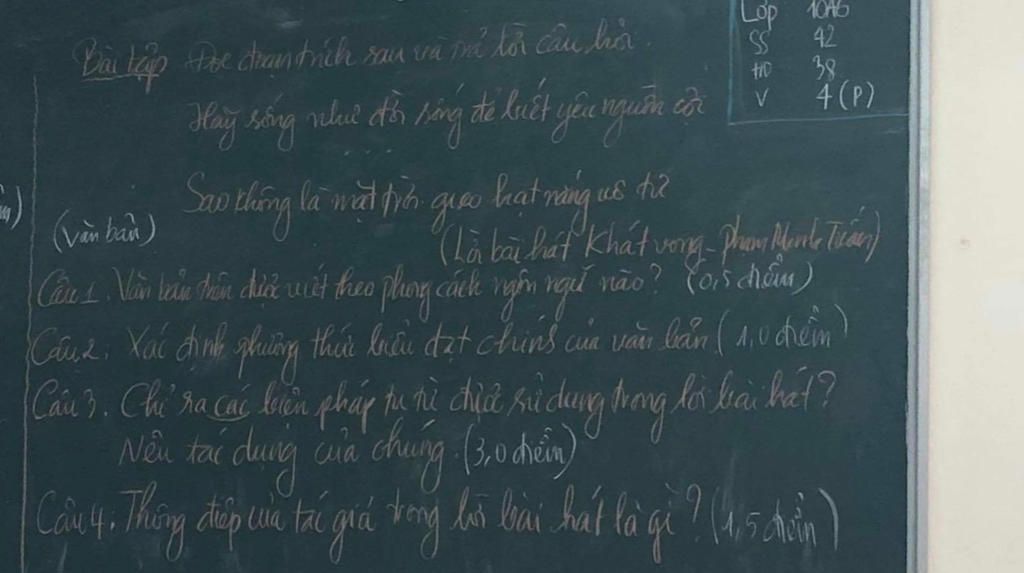 Lớp 10A6
SS 42
HD 38
V 4 (P)
Bài tập Đọc đoạn trích sau và trả lời câu hỏi.
Hãy sống như đời sống để biết yêu nguồn cội
Sao không là mặt trời gieo hạt nắng vô tư
(văn bản)
(Lời bài hát Khát vọng - Phạm Minh Tuấn)
Câu 1. Văn bản trên được viết theo phong cách ngôn ngữ nào? (0,5 điểm)
Câu 2. Xác định phương thức biểu đạt chính của văn bản (1,0 điểm)
Câu 3. Chỉ ra các biện pháp tu từ được sử dụng trong lời bài hát?
Nêu tác dụng của chúng. (3,0 điểm)
Câu 4. Thông điệp của tác giả trong lời bài hát là gì? (1,5 điểm)